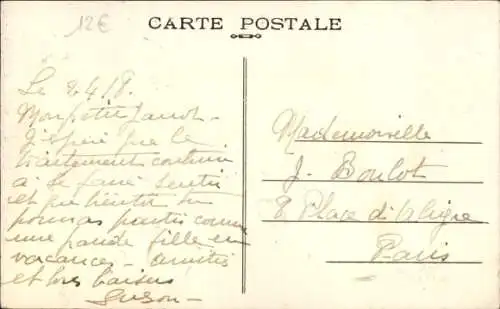 12€
CARTE POSTALE
Le 2.4/8.
Mon petit Janot -
J'espère que le
traitement continu
à se faire sentir
et que bientôt tu
pourras partir comme
une grande fille en
vacances - amitiés
et bons baisers
Suzon -
Mademoiselle
J. Boulot
8 Place d'Aligre
Paris